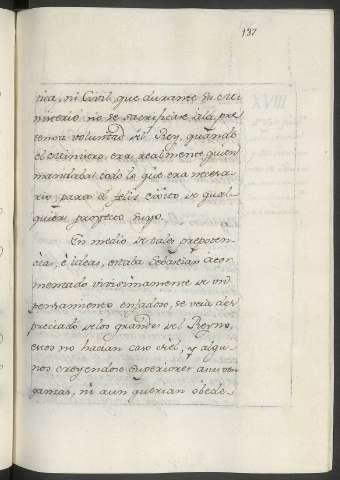 137
tica, ni Civil, que durante su Mi
nisterio no se sacrificase à la pre
tensa voluntad del Rey, quando
el Ministro era realmente quien
mandaba todo lo que era necesa
rio para el feliz exito de qual-
quier proyecto suyo.
En medio de tales prepoten-
cias, è ideas, estaba Sebastian ator
mentado vivisimamente de un
pensamiento enfadoso, se veia des
preciado de los grandes del Reyno,
estos no hacian caso de el, y algu
nos creyendose superiores a sus
gantas, ni aun querian obede-